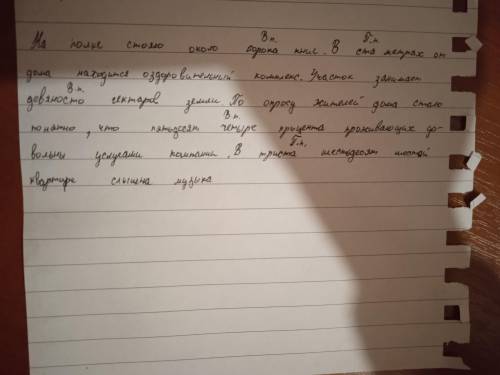 В п. П.п.
На полке стояло около сорока книг. В ста метрах от
дома находится оздоровительный комплекс. Участок занимает
В п.
девяносто гектаров земли. По опросу жителей дома стало
В п.
понятно, что пятьдесят четыре процента проживающих до-
П.п.
вольны услугами компании. В триста шестьдесят шестой
квартире слышна музыка